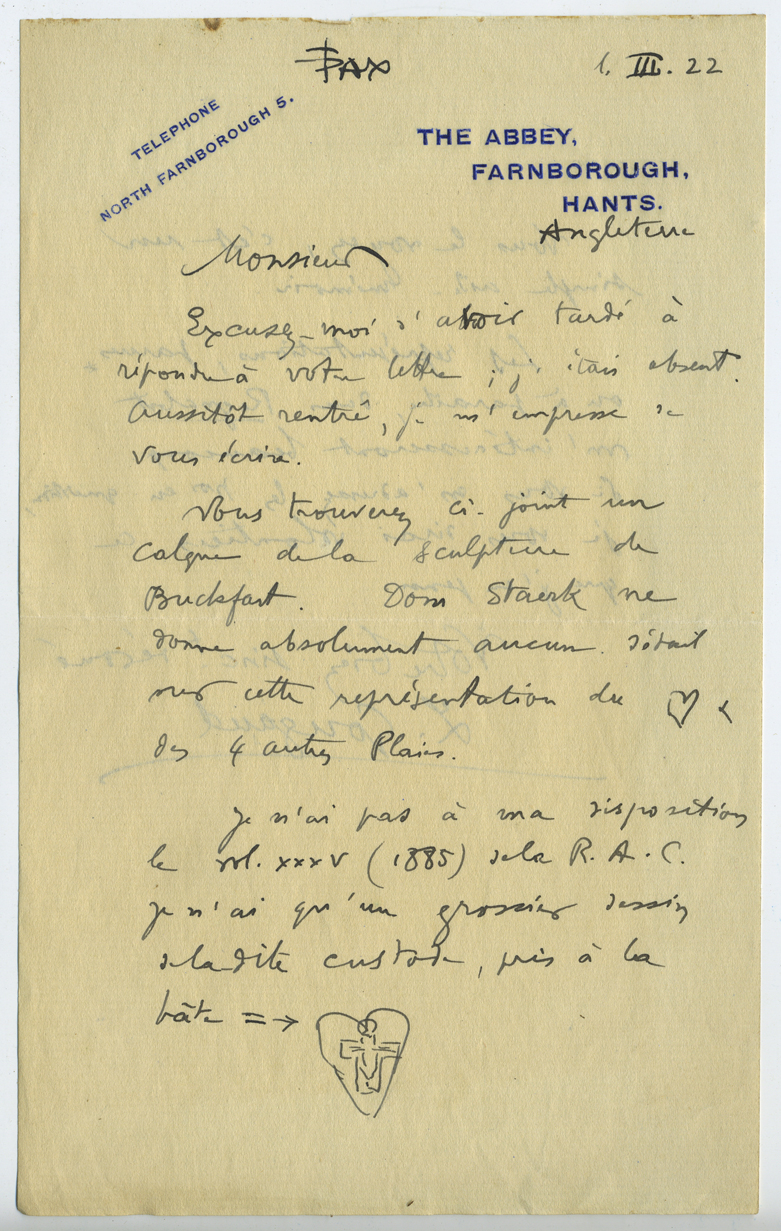 PAX
1. III. 22
TELEPHONE
NORTH FARNBOROUGH 5.
THE ABBEY,
FARNBOROUGH,
HANTS.
Angleterre
Monsieur
Excusez-moi d'avoir tardé à
répondre à votre lettre ; j'étais absent.
Aussitôt rentré, je m'empresse de
vous écrire.
Vous trouverez ci-joint un
calque de la sculpture de
Buckfast. Dom Staerk ne
donne absolument aucun détail
sur cette représentation du
des 4 autres Plaies.
Je n'ai pas à ma disposition
le vol. XXXV (1885) de la R. A. C.
Je n'ai qu'un grossier dessin
de ladite custode, pris à la
hâte =>